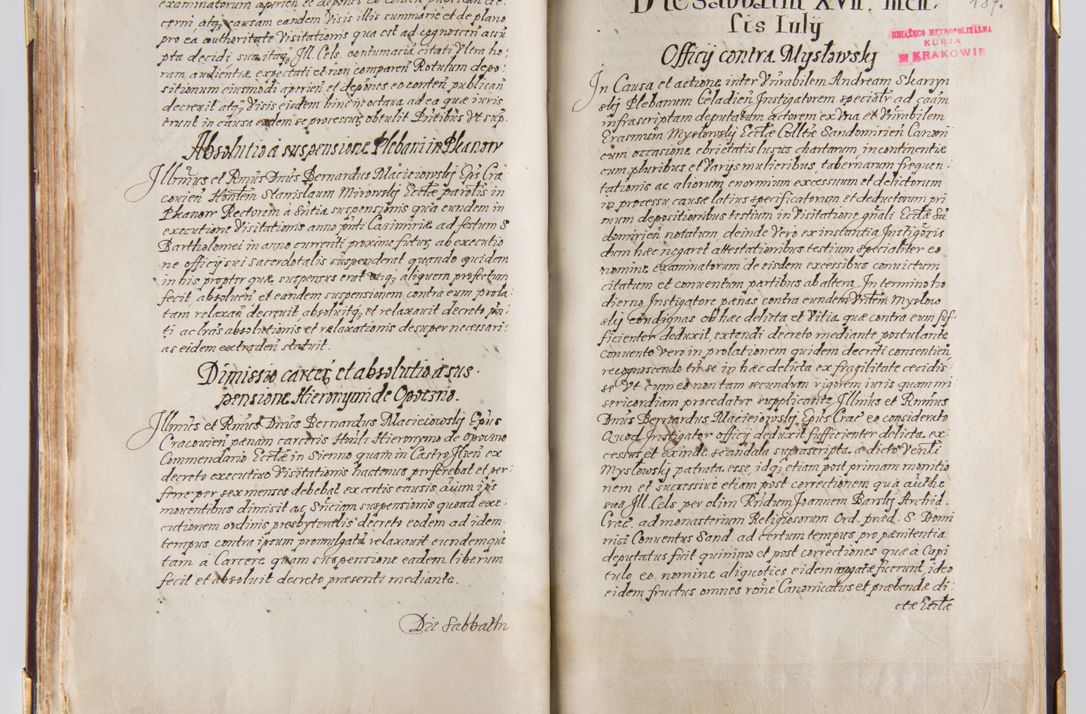 examinatorum aperien et depones eo conten publican de:
cerni atq; causam eandem Visis illis summarie et de plano
pro ea authoritate Visitationis qua est ad cognoscen ascri
pta decidi Ill. Cels. contumacia citati Vltra ho:
ram audientiæ expectati et non comparen Rotulum depo:
sitionum eiusmodi aperien et depones eo conten publican
decreuit atq; Visis eisdem hinc in octaua ad ea quæ iuris
erunt in causa eadem se processur obtulit Vt sup.
Absolutio â suspensione Plebani in Pkanow
Jllmus et Rmus Dnus Bernardus Macieiowskj Epus Cra
couien Honlem Stanislaum Mirowskj Ecclæ parolis in
Pkanow Rectorem â Sntia suspensionis qua eundem in
executione Visitationis anno pnti Casimiriæ ad festum S
Bartholomei in anno currenti proximé futur ab executio
ne officij sui sacerdotalis suspenderat quando quidem
in his propter quæ suspensus erat aliquem profectum
fecit absoluen et eandem suspensionem contra eum prola
tam relaxan decreuit absoluitq; et relaxauit decreto pn
ti ac lras absolutionis et relaxationis desuper necessari:
as eidem extraden statuit.
Dimissio carcer et absolutio â sus
pensione Hieronymi de Opocsno.
Jllmus et Rmus Dnus Bernardus Macieiowskj Epus
Cracouien pœnam carceris Honli Hieronymo de Opocsno
Commendario Ecclæ in Sienno quam in Castro Jlsen ex
decreto executiuo Visitationis hactenus perferebat et per
ferre per sex menses debebat ex certis causis, aium ips
mouentibus dimisit ac Snciam suspensionis quoad exe:
cutionem ordinis presbyteralis decreto eodem ad idem
tempus contra ipsum promulgata relaxauit eundemque
tam â Carcere quam suspensione eadem liberum
fecit et absoluit decreto præsenti mediante.
Die Sabbathi
Die Sabbathi XVII. Men:
sis Iulij
187.
KURJA
W KRAKOWIE
Officij contra Mysłowskj
In Causa et actione inter Vnrabilem Andream Skarzyn
skj Plebanum Celadien Jnstigatorem specialr ad caam
infrascriptam deputatum actorem ex Vna et Vnrabilem
Erasmum Mysłowskj Ecclæ Collta Sandomirien Canoni
cum occasione ebrietatis lusus chartarum incontinentiæ
cum pluribus et Varijs mulieribus, tabernarum frequen
tationis ac aliorum enormium excessuum et delictorum
in processu causæ latius specificatorum et deductorum pri
mium depositionibus testium in Visitatione gnali Ecclæ Sa
domirien notatum deinde Vero ex instantia Jnstigatoris
dum hæc negaret attestationibus testium specialiter eo
nomine examinatorum de eisdem excessibus conuictum
citatum et conuentum partibus ab altera. In termino ho
dierno Jnstigatore pœnas contra eundem Vnlem Mysłow
skj condignas ob hæc delicta et Vitia quæ contra eum suf
ficienter deduxit, extendi decreto mediante postulante
Conuento Vero in prolationem quidem decreti consentien
recognoscendo tn se in hæc delicta ex fragilitate cecidis
se Vt cum eo non tam secundum rigorem iuris quam mi
sericordiam procedatur supplicante Jllmus et Rmus
Dnus Bernardus Macieiowskj Epus Crac eo considerato
Quod Jnstigator officij deduxit sufficienter delicta, ex
cessus et exinde scandala suprascripta, â dicto Venli
Mysłowskj patrata esse, idq; etiam post primam monitio
nem et successiue etiam post correctionem quæ auth
sua Jll. Cels per olim Rndum Joannem Barskj Archid.
Crac. ad monasterium Religiosorum Ord. præd. S. Domi
nici Conuentus Sand. ad certum tempus pro pœnitentia
deputatus fuit quinimo et post correctiones quæ â Capi
tulo eo nomine aliquoties eidem irrogatæ fuerunt, ideo
eidem fructus omnes rone Canonicatus et præbendæ di:
ctæ Ecclæ